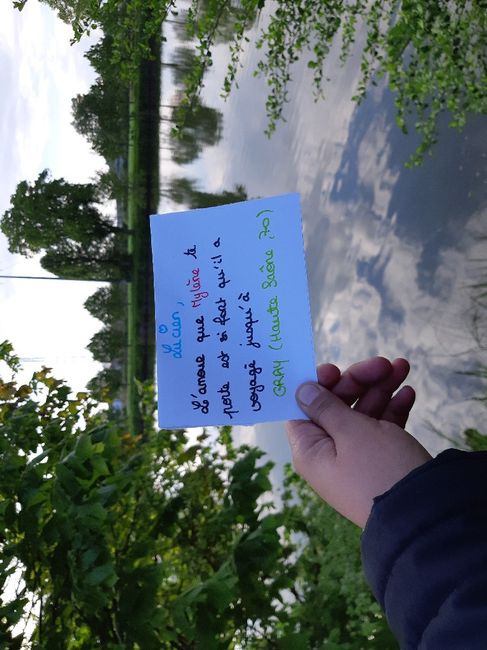 Lucien,
L'amour que Mylène te
porte est si fort qu'il a
voyagé jusqu'à
GRAY (Haute Saône, 70)